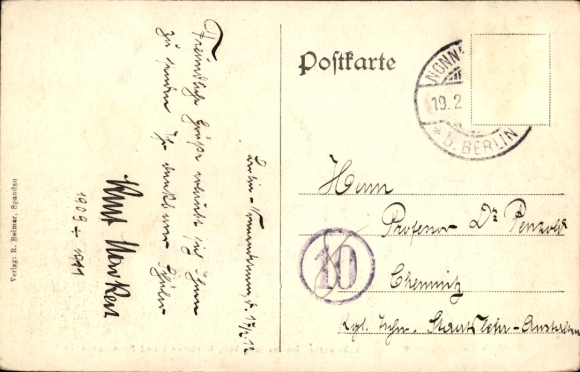 Postkarte
NONN
19.2
* b. BERLIN
Herrn
Professor Dr. Penzold
Chemnitz
Kgl. Staats Lehr-Anstalten
10
Berlin- d. 17/2. 12
Freundliche Grüße erlaubt sich Ihnen
zu senden Ihr dankbarer Schüler
Kurt
1909 ÷ 1911
Verlag: R. Reimer, Spandau